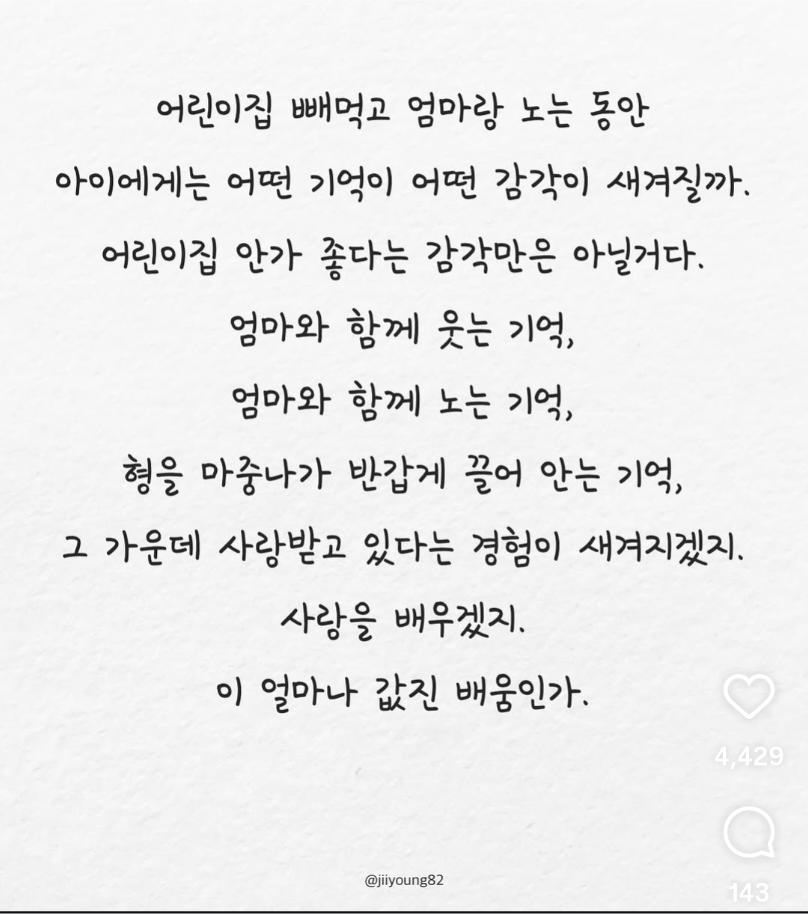 어린이집 빼먹고 엄마랑 노는 동안
아이에게는 어떤 기억이 어떤 감각이 새겨질까.
어린이집 안가 좋다는 감각만은 아닐거다.
엄마와 함께 웃는 기억,
엄마와 함께 노는 기억,
형을 마중나가 반갑게 끌어 안는 기억,
그 가운데 사랑받고 있다는 경험이 새겨지겠지.
사랑을 배우겠지.
이 얼마나 값진 배움인가.
4,429
@jiiyoung82
143